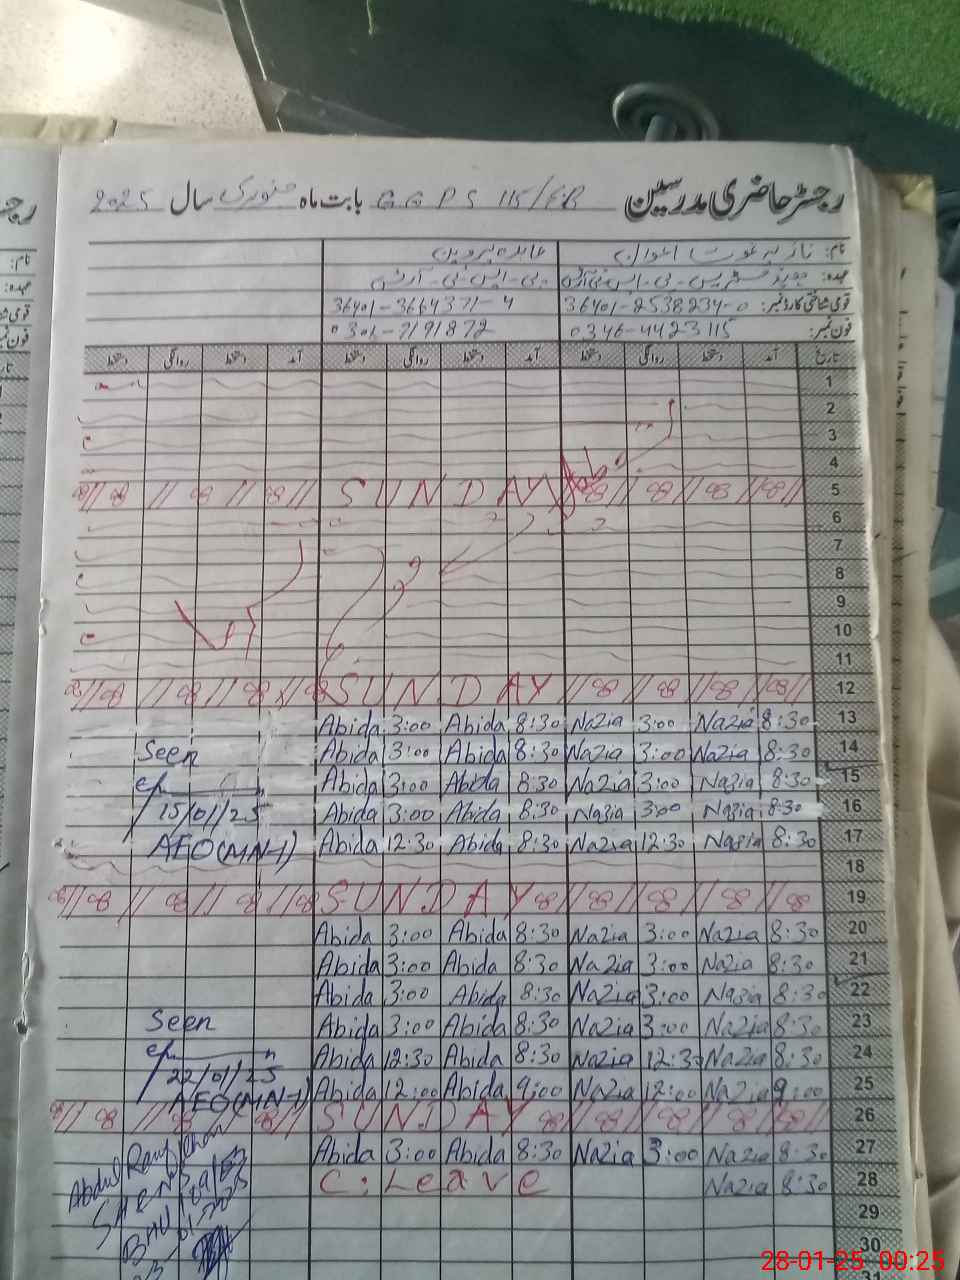 رجسٹر حاضری مدرسین G G P S 115/EB بابت ماہ جنوری سال 2025
نام: نازیہ غوث اعوان عابدہ پروین
عہدہ:
قومی شناختی کارڈ نمبر: 36401-2538234-0 36401-3664371-4
فون نمبر: 0346-4423115 0301-7191872
تاریخ آمد دستخط روانگی دستخط آمد دستخط روانگی دستخط آمد دستخط روانگی دستخط
1
2
3
4
5 SUNDAY
6
7
8
9
10
11
12 SUNDAY
13 8:30 Nazia 3:00 Nazia 8:30 Abida 3:00 Abida
14 8:30 Nazia 3:00 Nazia 8:30 Abida 3:00 Abida Seen
15 8:30 Nazia 3:00 Nazia 8:30 Abida 3:00 Abida
16 8:30 Nazia 3:00 Nazia 8:30 Abida 3:00 Abida 15/01/25
17 8:30 Nazia 12:30 Nazia 8:30 Abida 12:30 Abida AEO(MN-1)
18
19 SUNDAY
20 8:30 Nazia 3:00 Nazia 8:30 Abida 3:00 Abida
21 8:30 Nazia 3:00 Nazia 8:30 Abida 3:00 Abida
22 8:30 Nazia 3:00 Nazia 8:30 Abida 3:00 Abida
23 8:30 Nazia 3:00 Nazia 8:30 Abida 3:00 Abida Seen
24 8:30 Nazia 12:30 Nazia 8:30 Abida 12:30 Abida
25 9:00 Nazia 12:00 Nazia 9:00 Abida 12:00 Abida 22/01/25
AEO(MN-1)
26 SUNDAY
27 8:30 Nazia 3:00 Nazia 8:30 Abida 3:00 Abida
28 8:30 Nazia C. Leave
29
30
31
Abdul Rauf Khan
28-01-25 00:25